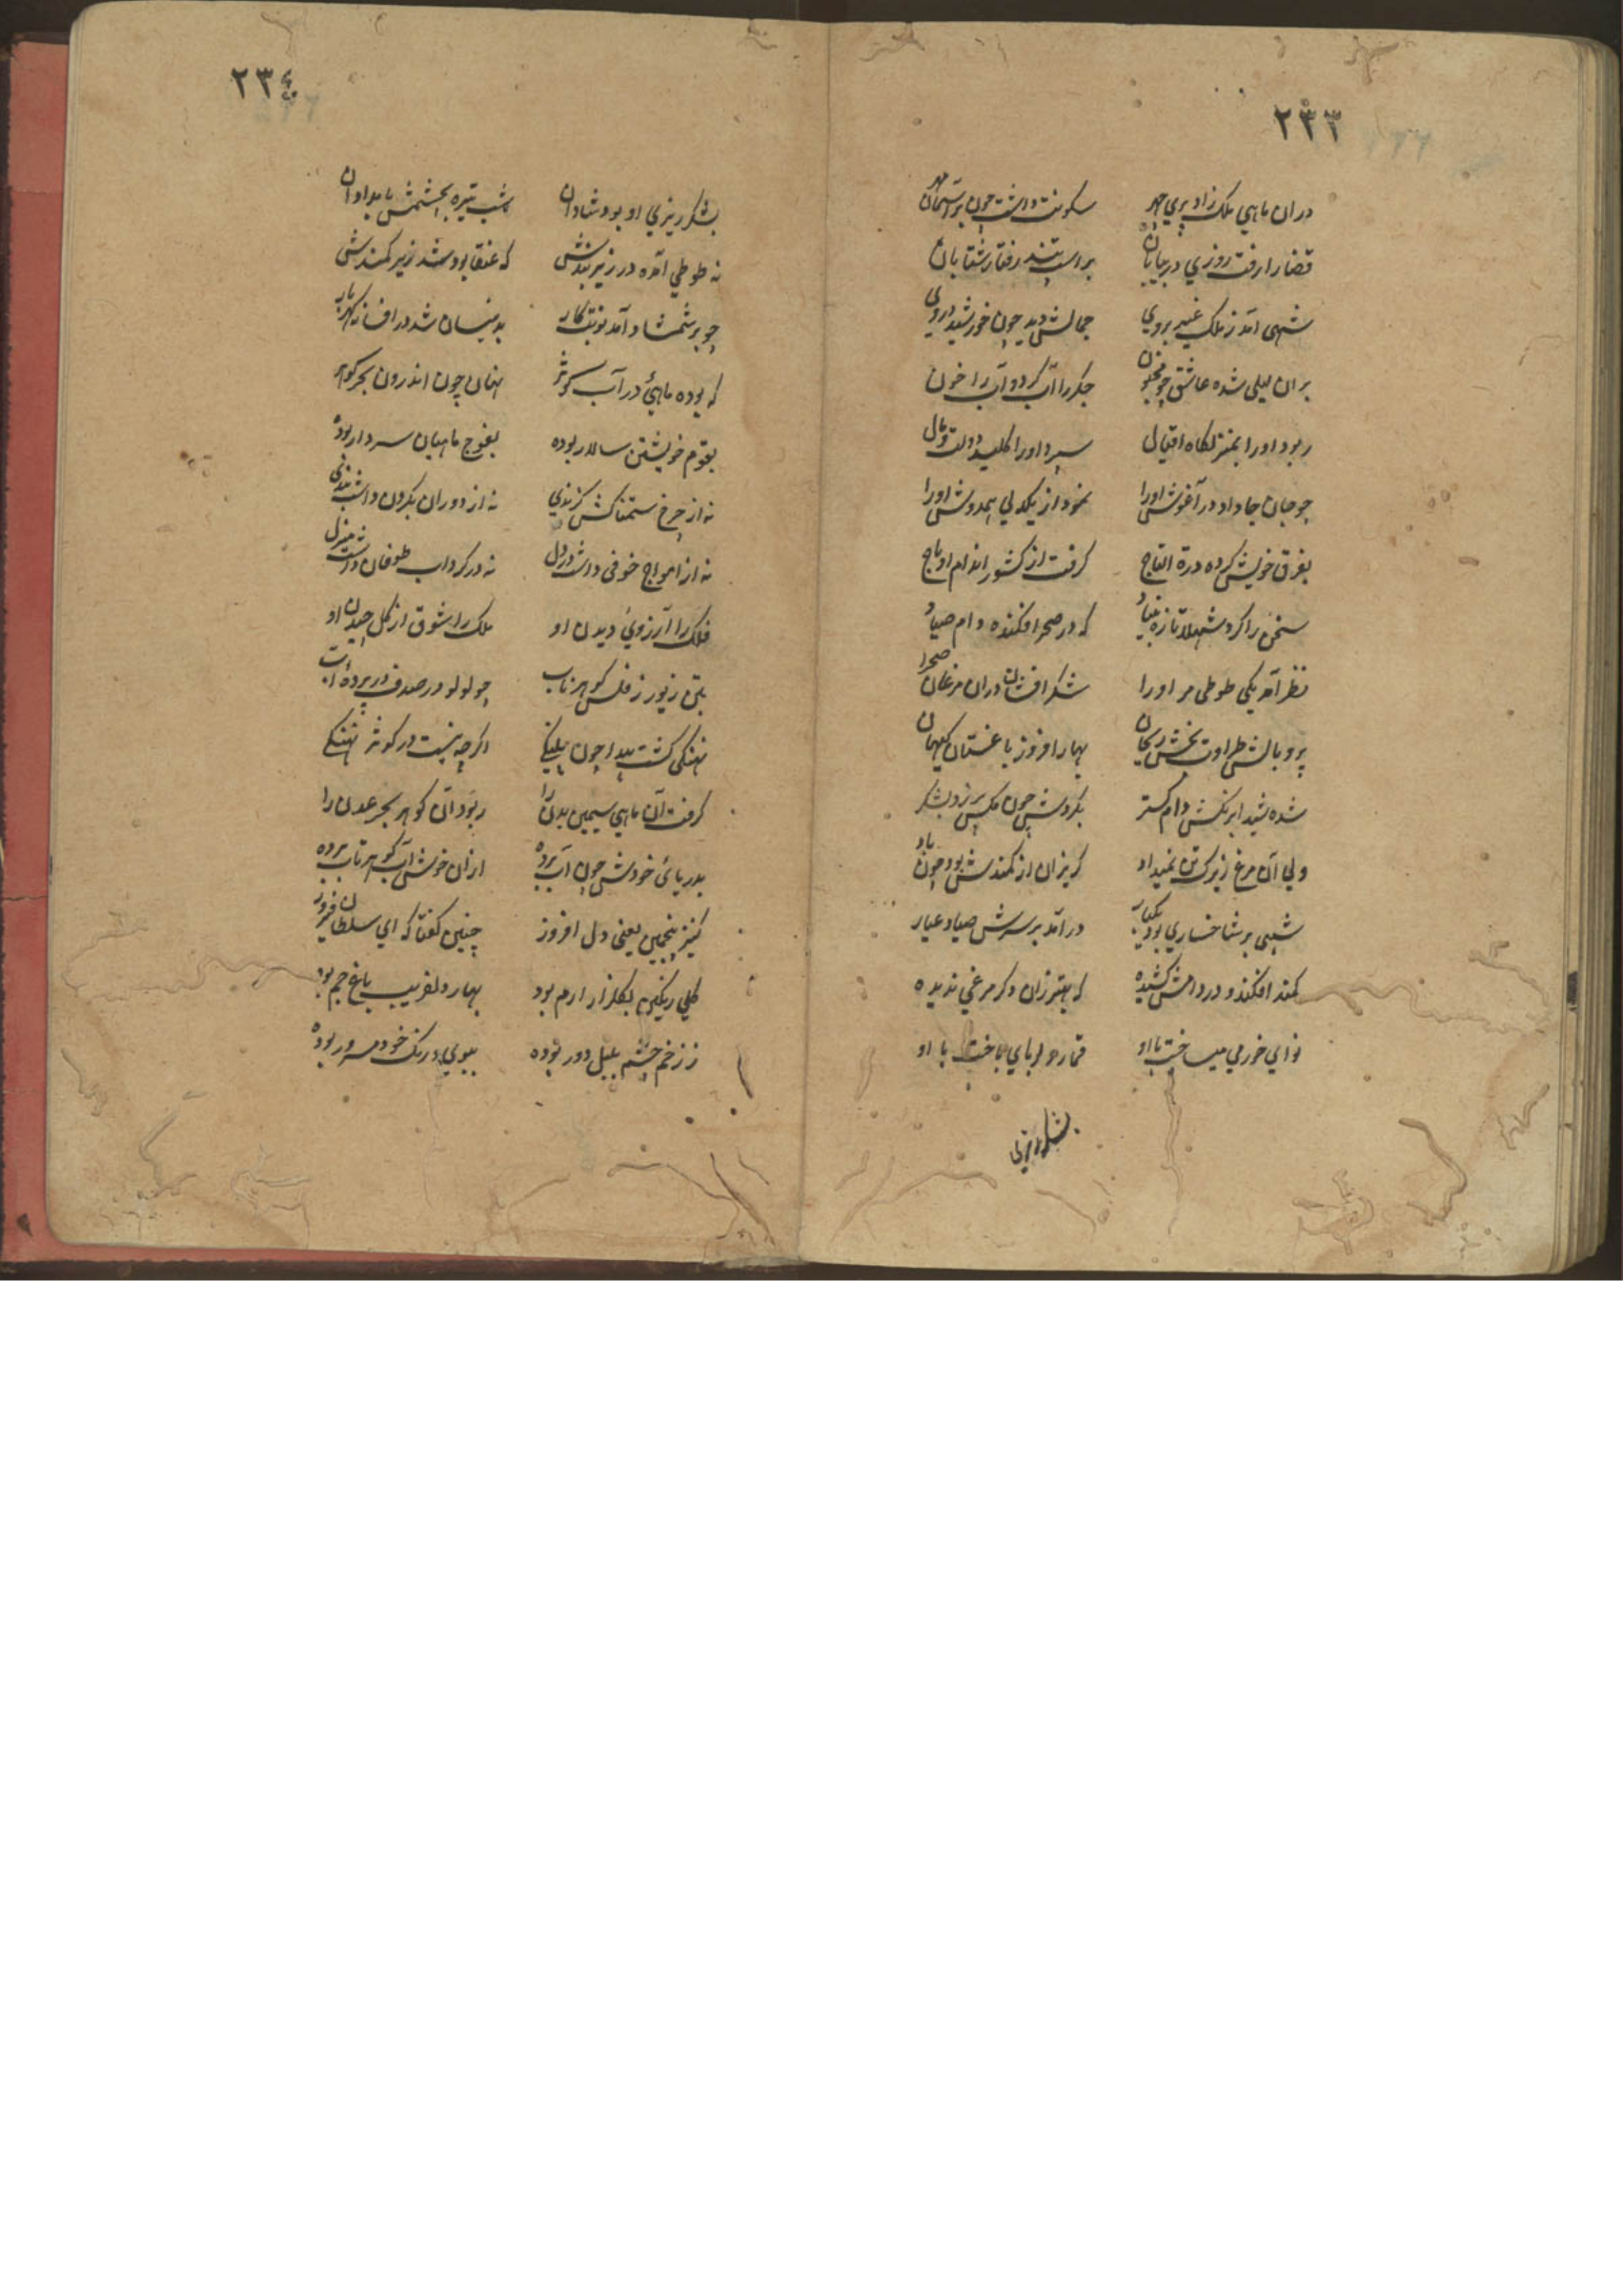 ۲۳۳
دران ماهی ملک زاد پری چهر سکونت داشت چون بر آسمان مهر
قضا را رفت روزی در بیابان براسب تند رفتار شتابان
شهی آمد ز ملک غیب بروی جمالش دید چون خورشید در وی
بران لیلی شده عاشق چو مجنون جگر را آب کرد و آب را خون
ربود او را بمنزلکاه اقبال سپرد او را کلید دولت و مال
چو جان جا داد در آغوش او را نمود از یکدلی همدوش او را
بفرق خویش کرده درة التاج کرفت از کشور اندام او باج
سخن را کرد شهلا تازه بنیاد که در صحرا فکنده دام صیاد
نظر آمد یکی طوطی مر او را شکر افشان دران مرغان صحرا
پر و بالش طراوت بخش ریحان بهار افروز باغستان کیهان
شده شیدا برنکش دام کستر بکردش چون مکس پر زد بشکر
ولی آن مرغ زیرک تن نمیداد کریزان از کمندش بود چون باد
شبی بر شاخساری بود یکبار در آمد بر سرش صیاد عیار
کمند افکند و در دامش کشیده که بهتر زان دکر مرغی ندیده
نوای خرمی میساخت با او قمار دلربای باخت با او
بشکر ریزی
۲۳٤
بشکر ریزی او بود شادان شب تیره بچشمش بامدادان
نه طوطی آمده در زیر بندش که عنقا بود شد زیر کمندش
چو بر شمشاد آمد نوبت کار بدینسان شد در افسانه کهربار
که بوده ماهئ در آب کوثر نهان چون اندرون بحر کوهر
بقوم خویشتن سالار بوده بفوج ماهیان سردار بوده
نه از چرخ ستمناکش کزندی نه از دوران بکردن داشت بندی
نه از امواج خوفی داشت در دل نه در کرداب طوفان داشت منزل
فلک را آرزوی دیدن او ملک را شوق از کل چیدن او
بتن زیور ز فلس کوهر ناب چو لولو در صدف در پرده آب
نهنکی کشت پیدا چون پلنکی اکرچه نیست در کوثر نهنکی
کرفت آن ماهی سیمین بدن را ربود آن کوهر بحر عدن را
بدریائ خودش چون آب برده ازان خوش آب کوهر تاب برده
کنیز پنجمین یعنی دل افروز چنین کفتا که ای سلطان فیروز
کلی رنکین بکلزار ارم بود بهار دلفریب باغ جم بود
ز زخم چشم بلبل دور بوده ببوی و رنک خود مسرور بوده